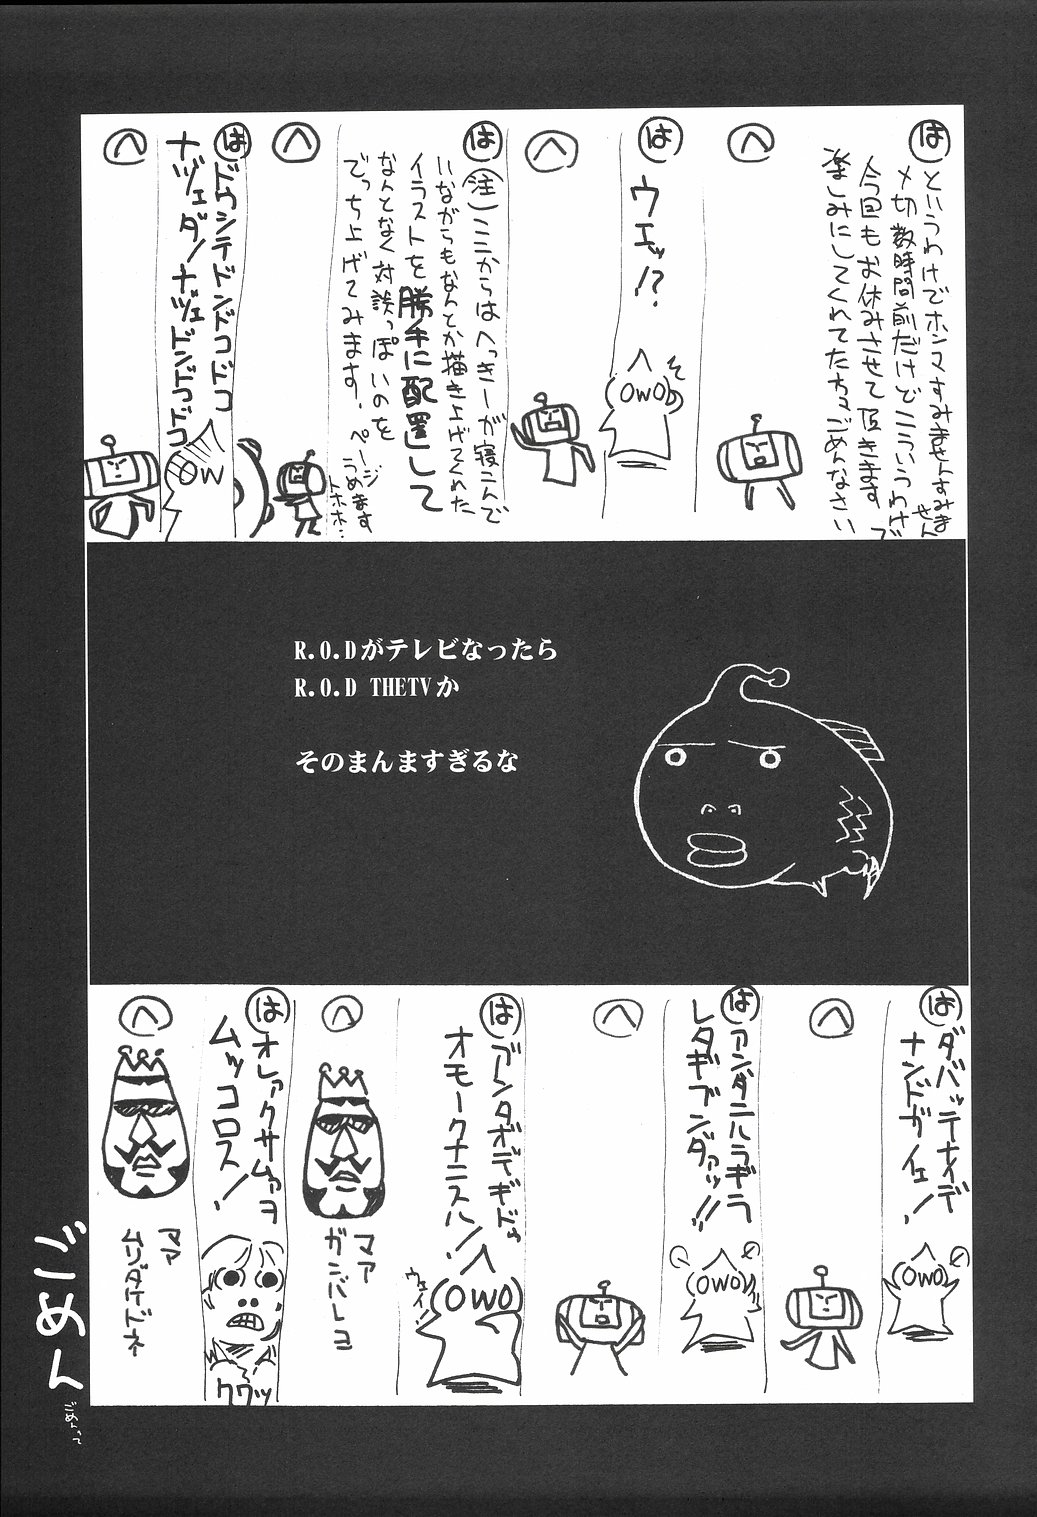 は
というわけでホンマすみませんすみません
〆切数時間前だけどこういうわけで
今回もお休みさせて頂きます
楽しみにしてくれてた方々ごめんなさい
へ
は
ウェッ!?
へ
は
注)ここからはへっきーが寝こんで
いながらもなんとか描き上げてくれた
イラストを勝手に配置して
なんとなく対談っぽいのを
でっち上げてみます。
ページ
うめます
トホホ…
へ
は
ドウシテドンドコドコ
ナヅェダ!ナヅェドンドコドコ
OW
へ
OWO
R.O.Dがテレビなったら
R.O.D THETVか
そのまんますぎるな
は
ダバッテナイデ
ナンドガイェ!
OWO
へ
は
アンダニハラギラ
レタギブンダァッ!!
OWO
へ
は
アンタボデギドゥ
オモークナニスハ!
ウェイ!
OWO
へ
マァ
ガンバレヨ
は
オレァクサムァヲ
ムッコロス!
クワッ
へ
マァ
ムリダケドネ
ごめん
ごめんって